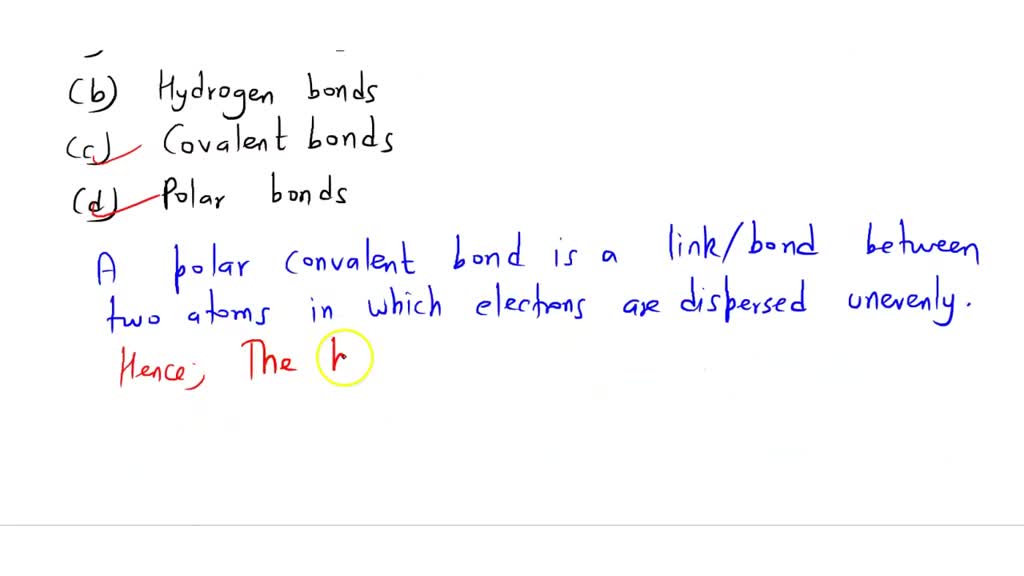 (b) Hydrogen bonds
(c) Covalent bonds
(d) Polar bonds
A polar convalent bond is a link/bond between
two atoms in which electrons are dispersed unevenly.
Hence; The